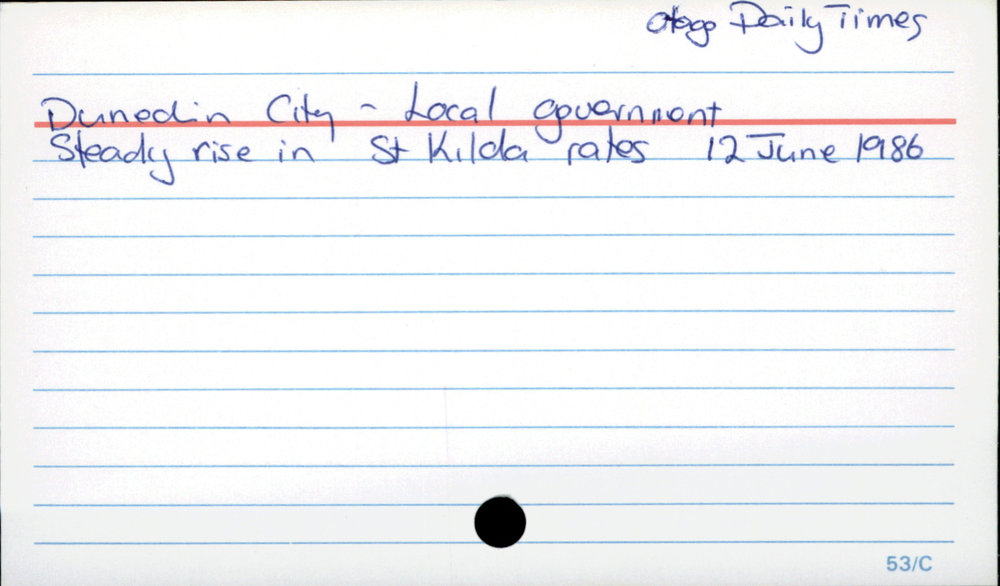 Otago Daily Times
Dunedin City - Local government
Steady rise in St Kilda rates 12 June 1986
53/C